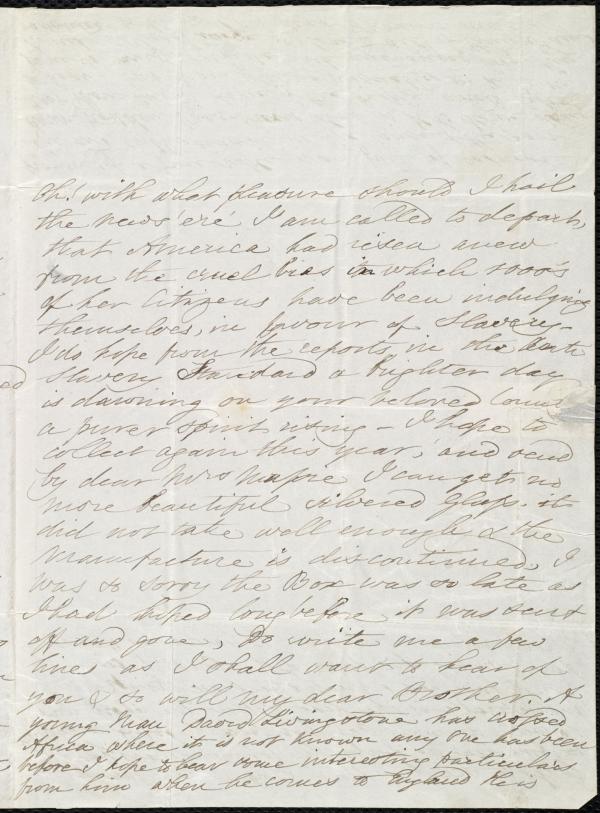 Oh! with what pleasure should I hail
the news 'ere' I am called to depart,
that America had risen anew
from the cruel bias in which 1000's
of her Citizens have been indulging
themselves, in favour of Slavery -
I do hope from the reports in the Anti
Slavery Standard a brighter day
is dawning on your beloved
a purer spirit rising - I hope to
collect again this year, and send
by dear Mrs I can get no
more beautiful silvered Glass. it
did not take well enough & the
Manufacture is discontinued. I
was so sorry the Box was so late as
I had hoped long before it was sent
off and gone, Do write me a few
lines as I shall want to hear of
you & so will my dear Brother. A
young Man David Livingstone has crossed
Africa where it is not known any one has been
before I hope to hear some interesting particulars
from him when he comes to England He is